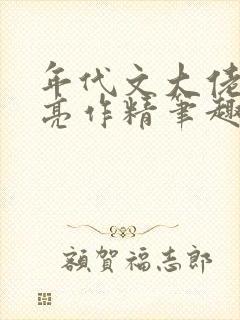 年代文大佬
亮作精笔趣
額賀福志郎